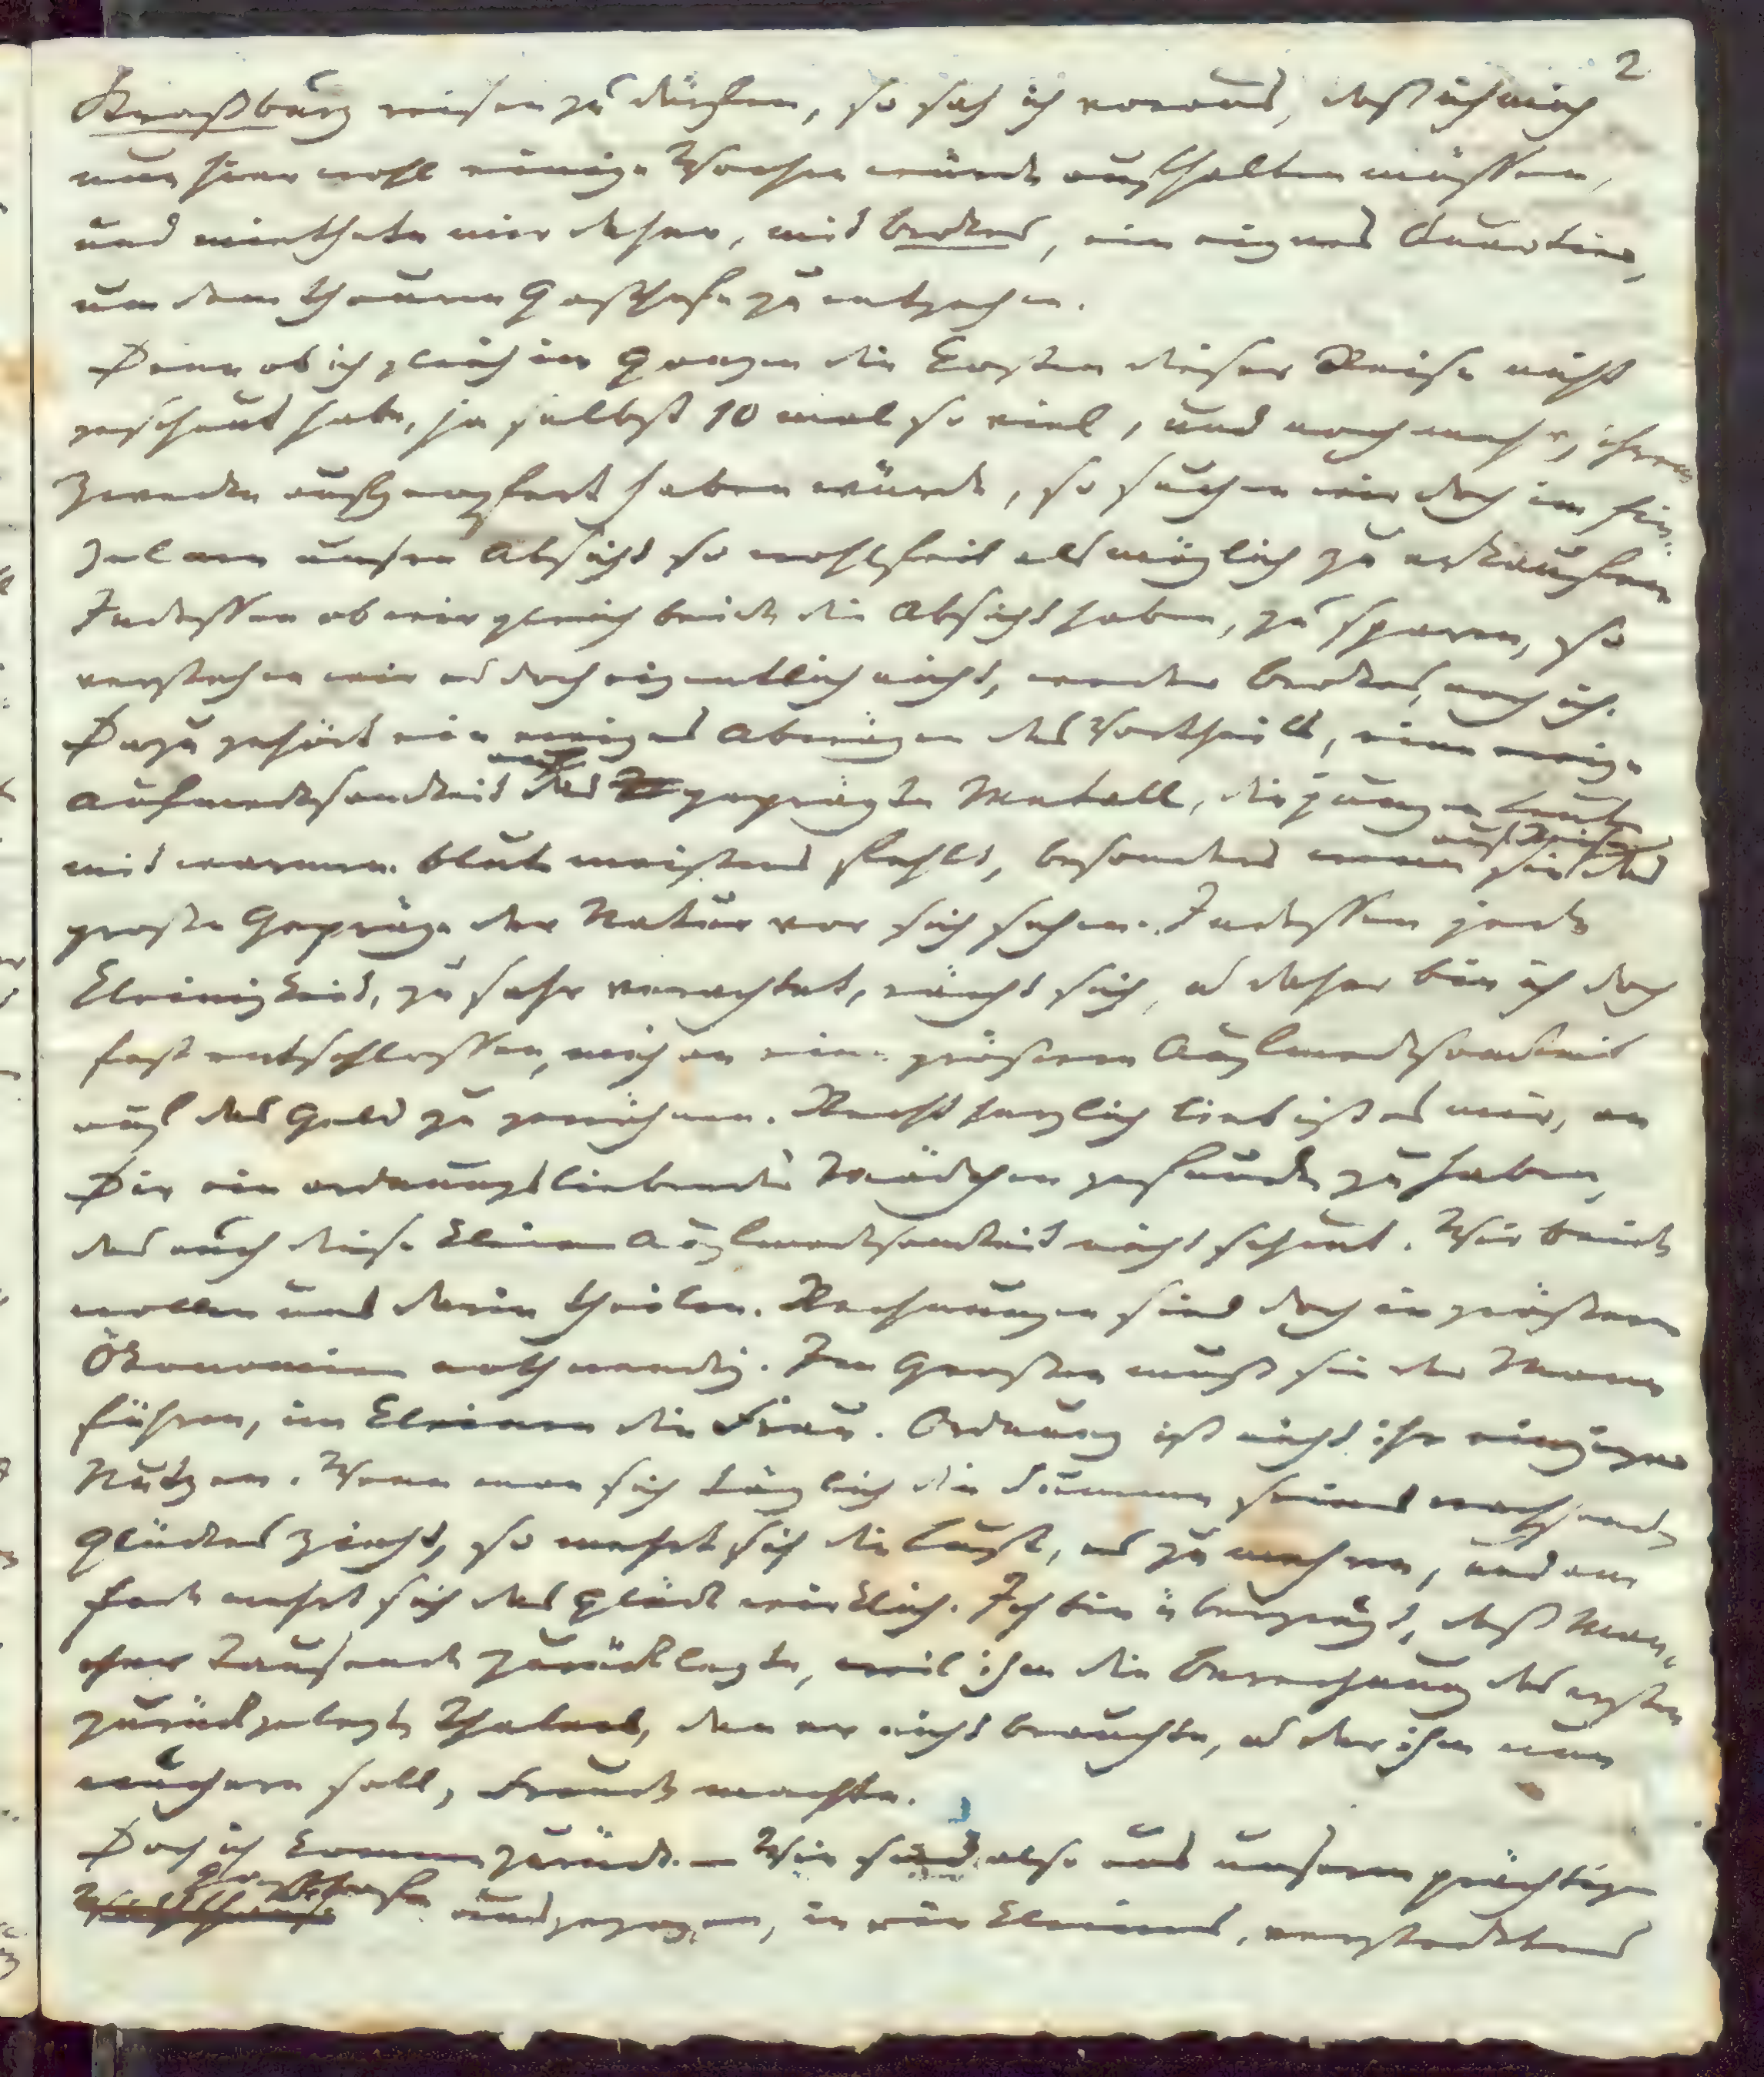 2
Straßburg reisen zu dürfen, so sah ich voraus, daß ich mich
nun hier wohl einige Wochen würde aufhalten müssen,
und miethete mir daher, mit Brokes, ein eignes Quartier,
um dem theuern Gasthofe zu entgehen.
Denn ob ich gleich im Ganzen die Kosten dieser Reise nicht
gescheut habe, ja selbst 10 mal so viel, und noch mehr, ihrem
Zwecke aufgeopfert haben würde, so suchen wir doch im Ein-
zelnen unsre Absicht so wohlfeil als möglich zu erkaufen.
Indessen ob wir gleich beide die Absicht haben, zu sparen, so
verstehen wir es doch eigentlich nicht, weder Brokes, noch ich.
Dazu gehört ein ewiges Abwägen des Vortheils, eine ewige
Aufmerksamkeit auf das geprägte Metall, die jungen Leuten
mit warmem Blute meistens fehlt, besonders wenn sie auf Reisen das
große Gepräge der Natur vor sich sehen. Indessen jede
Kleinigkeit, zu sehr verachtet, rächt sich, u daher bin ich doch
fest entschlossen, mich an eine größere Aufmerksamkeit
auf das Geld zu gewöhnen. Recht herzlich lieb ist es mir, an
Dir ein ordnungsliebendes Mädchen gefunden zu haben,
das auch diese kleine Aufmerksamkeit nicht scheut. Wir beide
wollen uns darin theilen. Rechnungen sind doch in größern
Ökonomien nothwendig. Im Großen muß sie der Mann
führen, im Kleinen die Frau. Ordnung ist nicht ihr einziger
Nutzen. Wenn man sich täglich die Summe seines wachsenden
Glückes zieht, so mehrt sich die Lust, es zu mehren, und am
Ende mehrt sich das Glück wirklich. Ich bin überzeugt, daß Man-
cher Tausende zurücklegte, weil ihm die Berechnung des ersten
zurückgelegten Thalers, den er nicht brauchte, u der ihm nun
wuchern soll, Freude machte.
Doch ich komme zurück. — Wir sind also aus unserm prächtigen
Gasthofe ausgezogen, in ein kleines, verstecktes